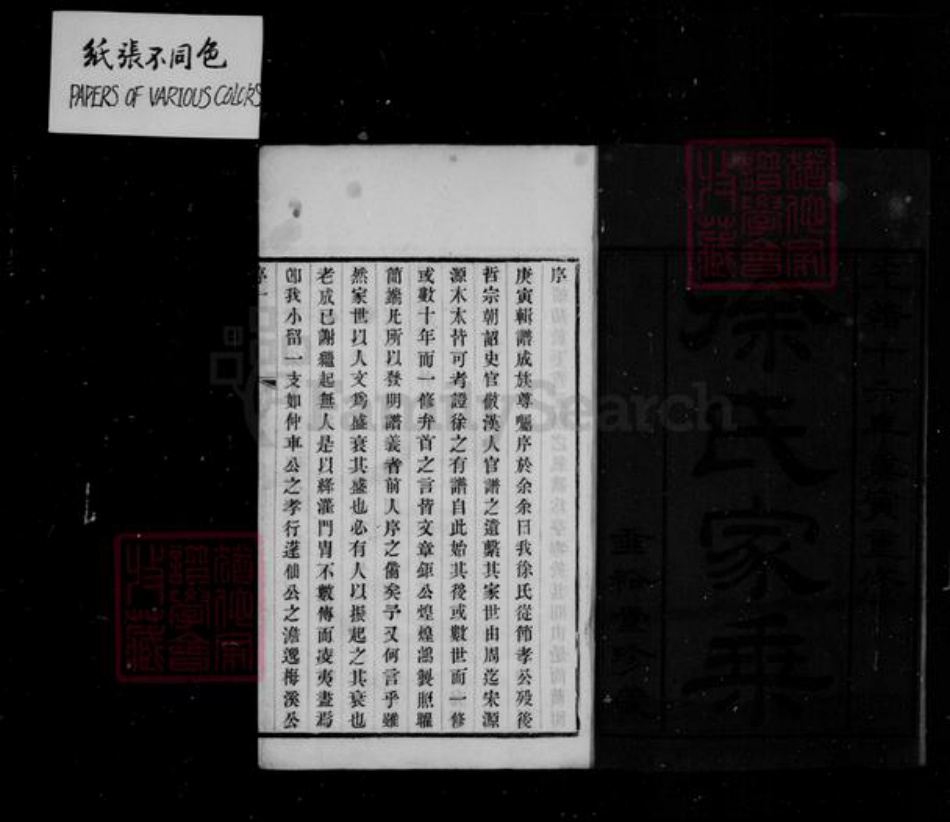 紙張不同色
PAPERS OF VARIOUS COLORS
徐氏家乘
垂裕堂珍藏
序
庚寅輯譜成族尊囑序於余余曰我徐氏從節孝公歿後
哲宗朝詔史官倣漢人官譜之遺繫其家世由周迄宋源
源木本皆可考證徐之有譜自此始其後或數世而一修
或數十年而一修弁首之言皆文章鉅公煌煌鴻製照耀
簡端凡所以發明譜義者前人序之備矣予又何言乎雖
然家世以人文爲盛衰其盛也必有人以振起之其衰也
老成已謝繼起無人是以絳灌門胄不數傳而凌夷盡焉
卽我小留一支如仲車公之孝行蓬仙公之澹逸梅溪公
FamilySearch